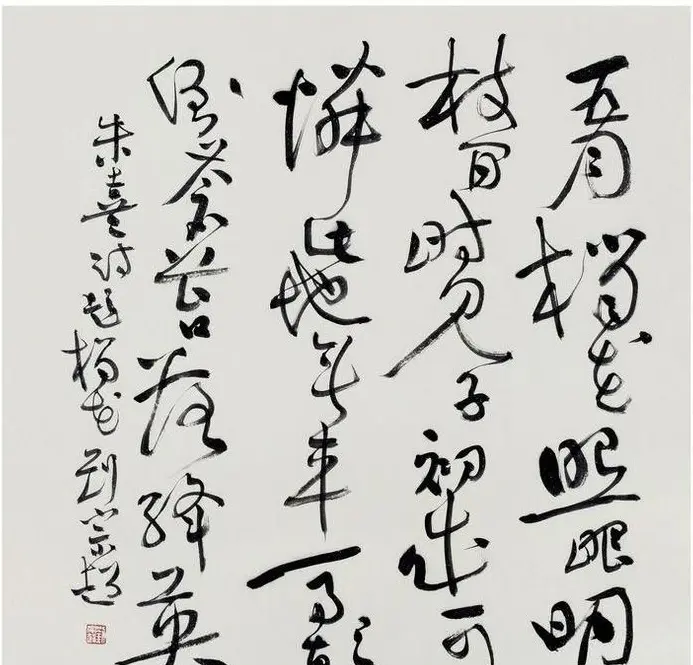 五月榴花照眼明
枝间时见子初成可
憐此地无車马颠
倒苍苔落绛英
朱熹诗题榴花 刘宗超